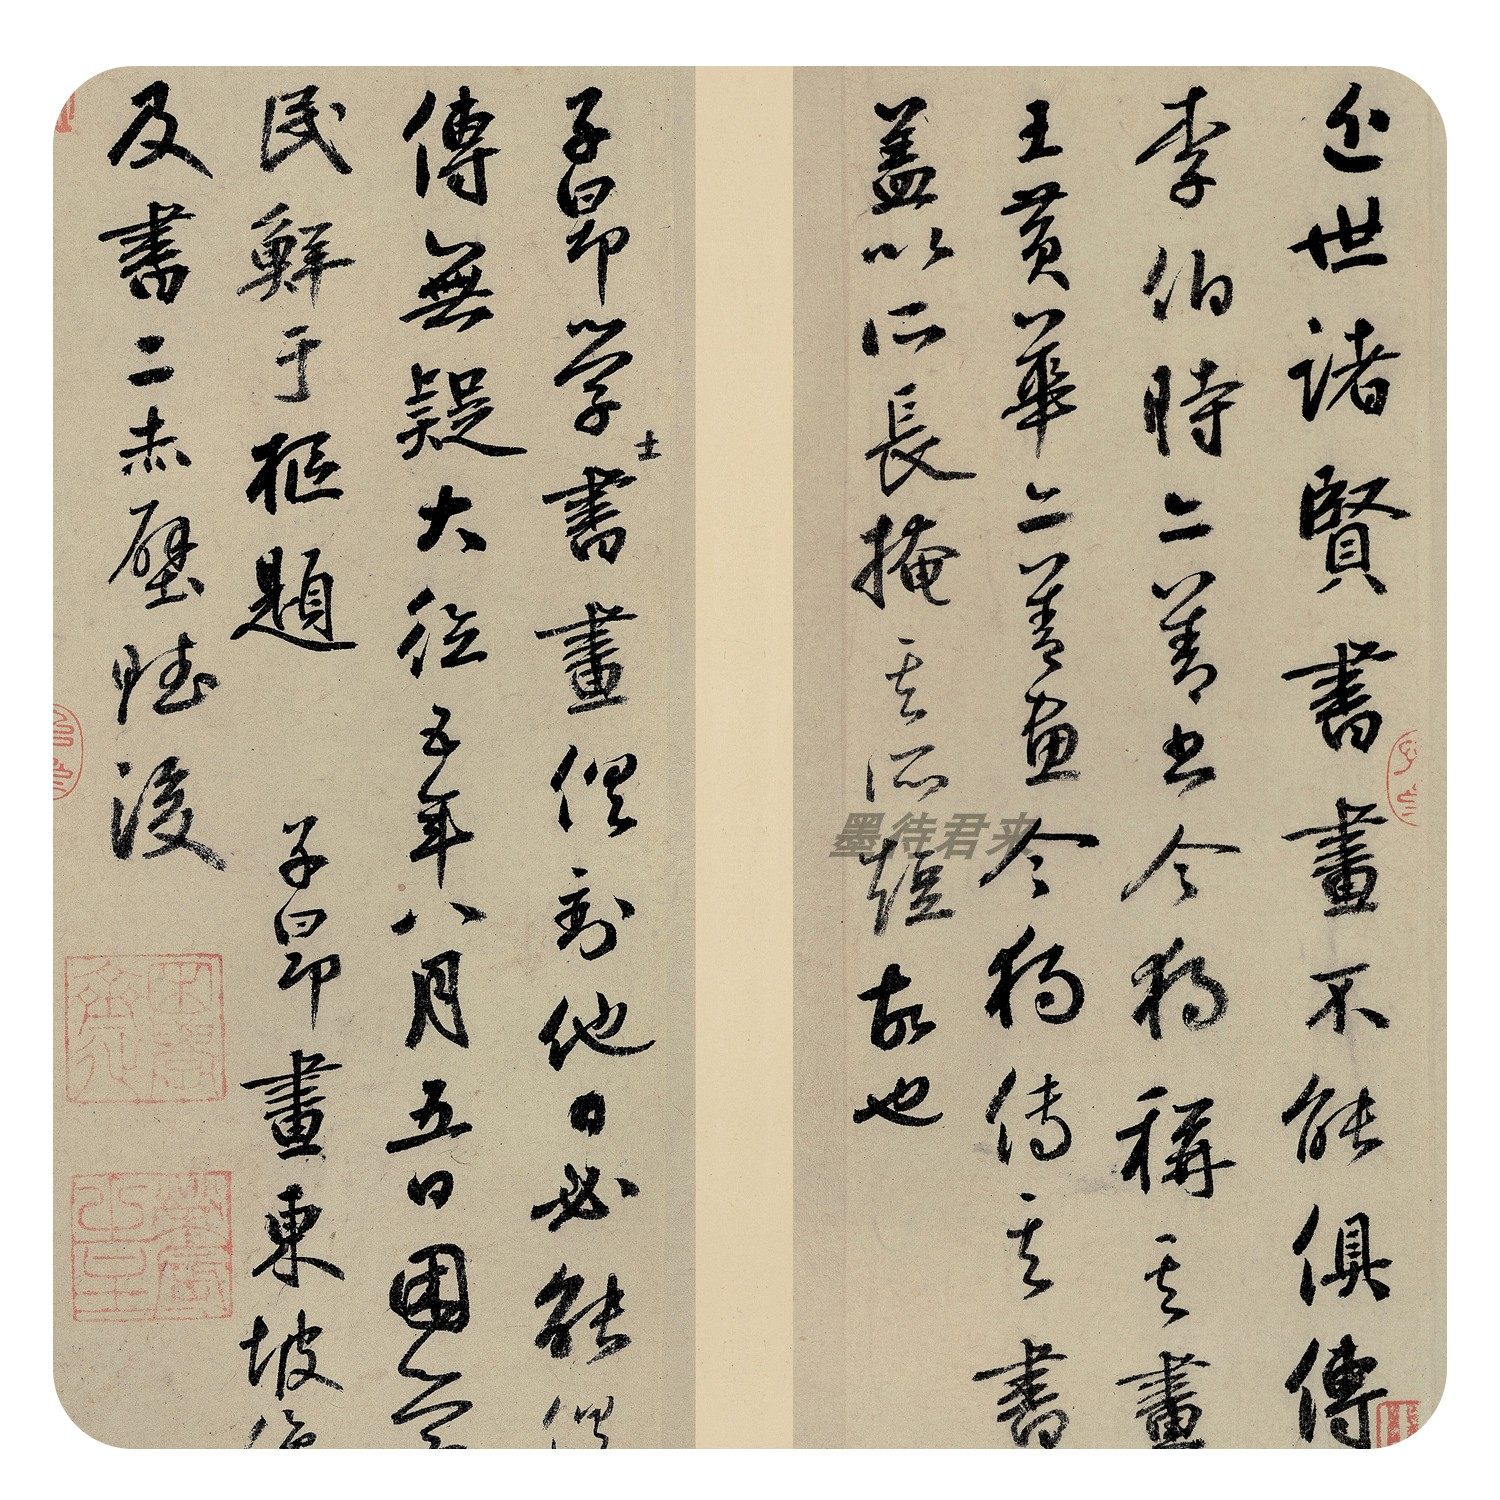 近世諸賢書畫不能俱傳
李伯時亦善书今獨稱其畫
王黃華亦善画今獨传其書
蓋以所長掩其所短故也
子昂学士書畫俱到他日必能俱
傳無疑大德五年八月五日困学
民鮮于樞題 子昂畫東坡像
及書二赤壁賦後
墨待君来